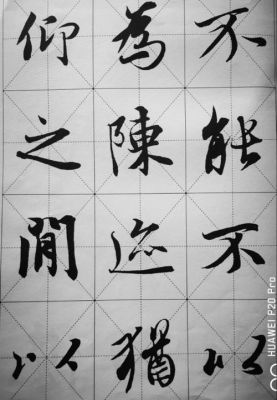 仰之閒以
為陳迹猶
不能不以
HUAWEI P20 Pro